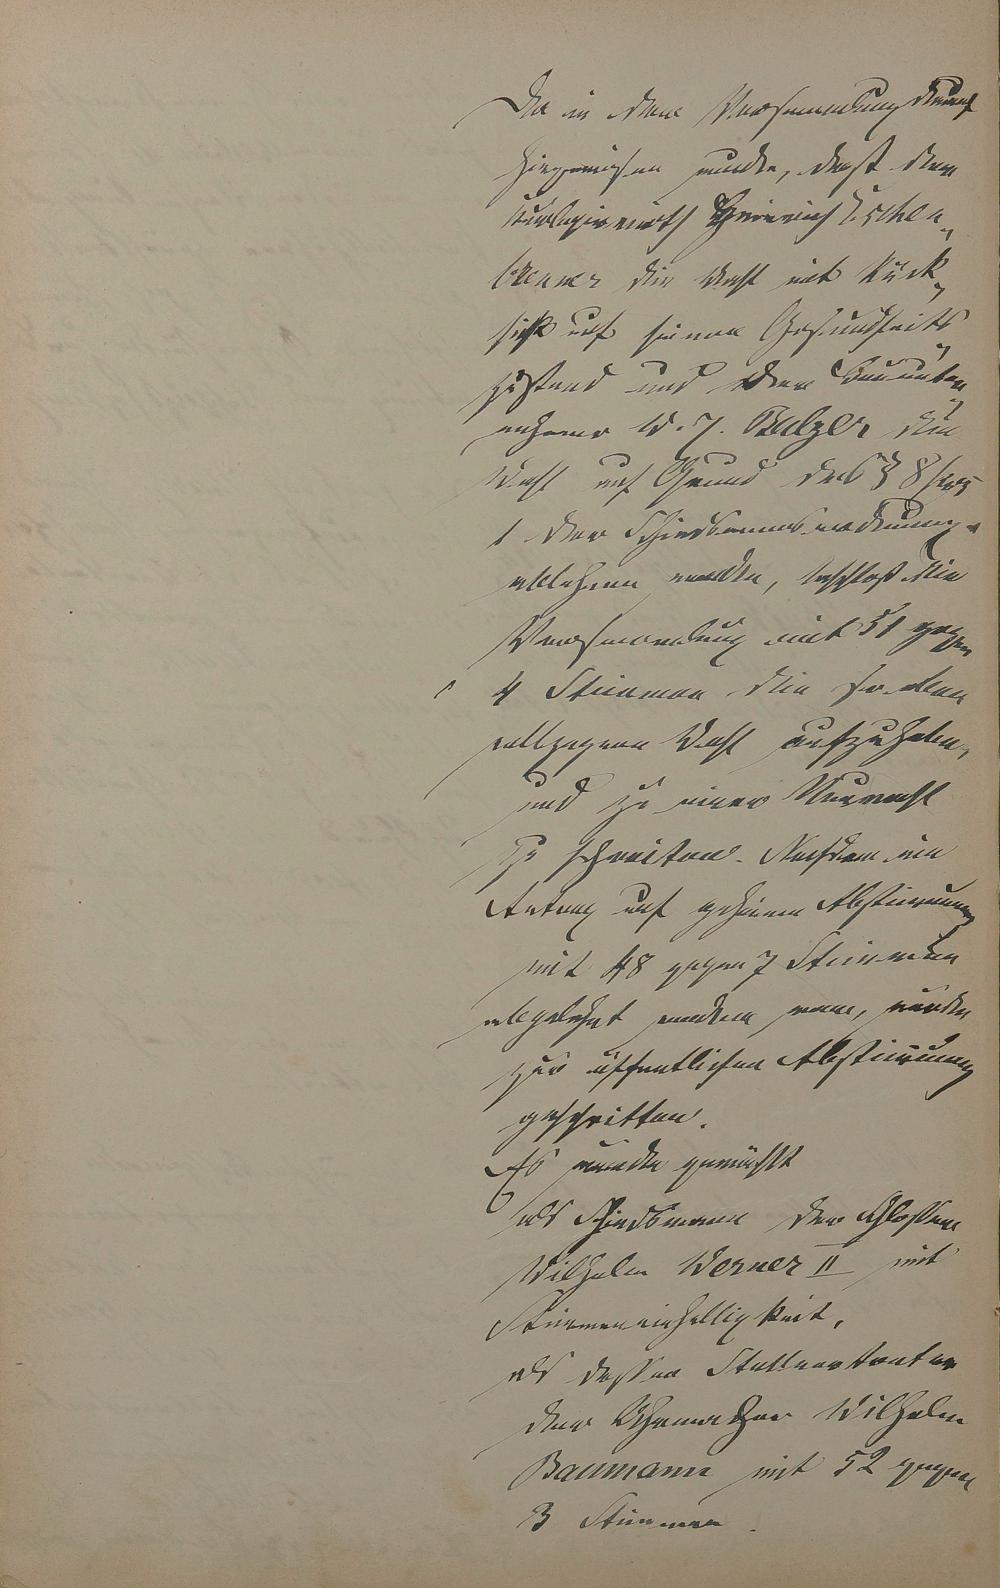 Da in der Versammlung darauf
hingewiesen wurde, daß der
Heinrich Eschen
brenner die Wahl mit Rück
sicht auf seinen Gesundheits
zustand und der Bauunter
nehmer W. J. Balzer die
Wahl auf Grund des § 8
1 der Schiedsmannsordnung
ablehnen würde, beschloß die
Versammlung mit 51 gegen
4 Stimmen die so eben
vollzogene Wahl aufzuheben,
und zu einer Neuwahl
zu schreiten. Nachdem ein
Antrag auf geheime Abstimmung
mit 48 gegen 7 Stimmen
abgelehnt worden war, wurde
zur öffentlichen Abstimmung
geschritten.
Es wurde gewählt
als Schiedsmann der Schlosser
Wilhelm Werner II mit
Stimmeneinhelligkeit,
als dessen Stellvertreter
der Uhrmacher Wilhelm
Baumann mit 52 gegen
3 Stimmen.